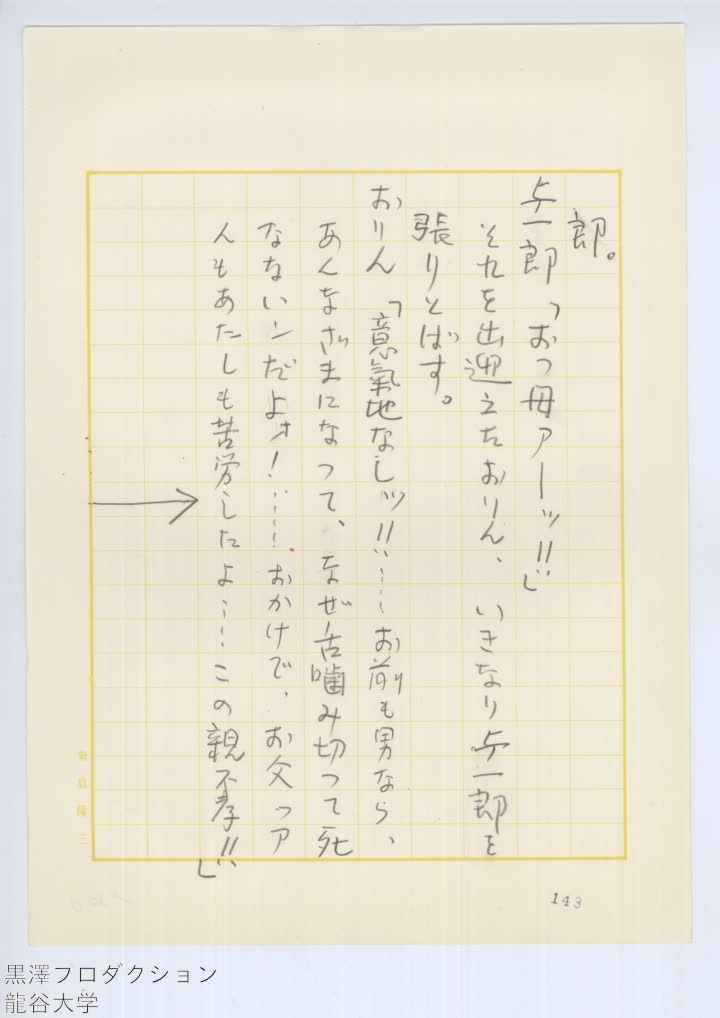 郎。
与一郎「おっ母アーッ!!」
それを出迎えたおりん、いきなり与一郎を
張りとばす。
おりん「意氣地なしッ!!……お前も男なら、
あんなざまになって、なぜ舌噛み切って死
なないンだよォ!……おかげで、お父ッア
んもあたしも苦労したよ……この親不孝!!」
143
黒澤フロダクション
龍谷大学